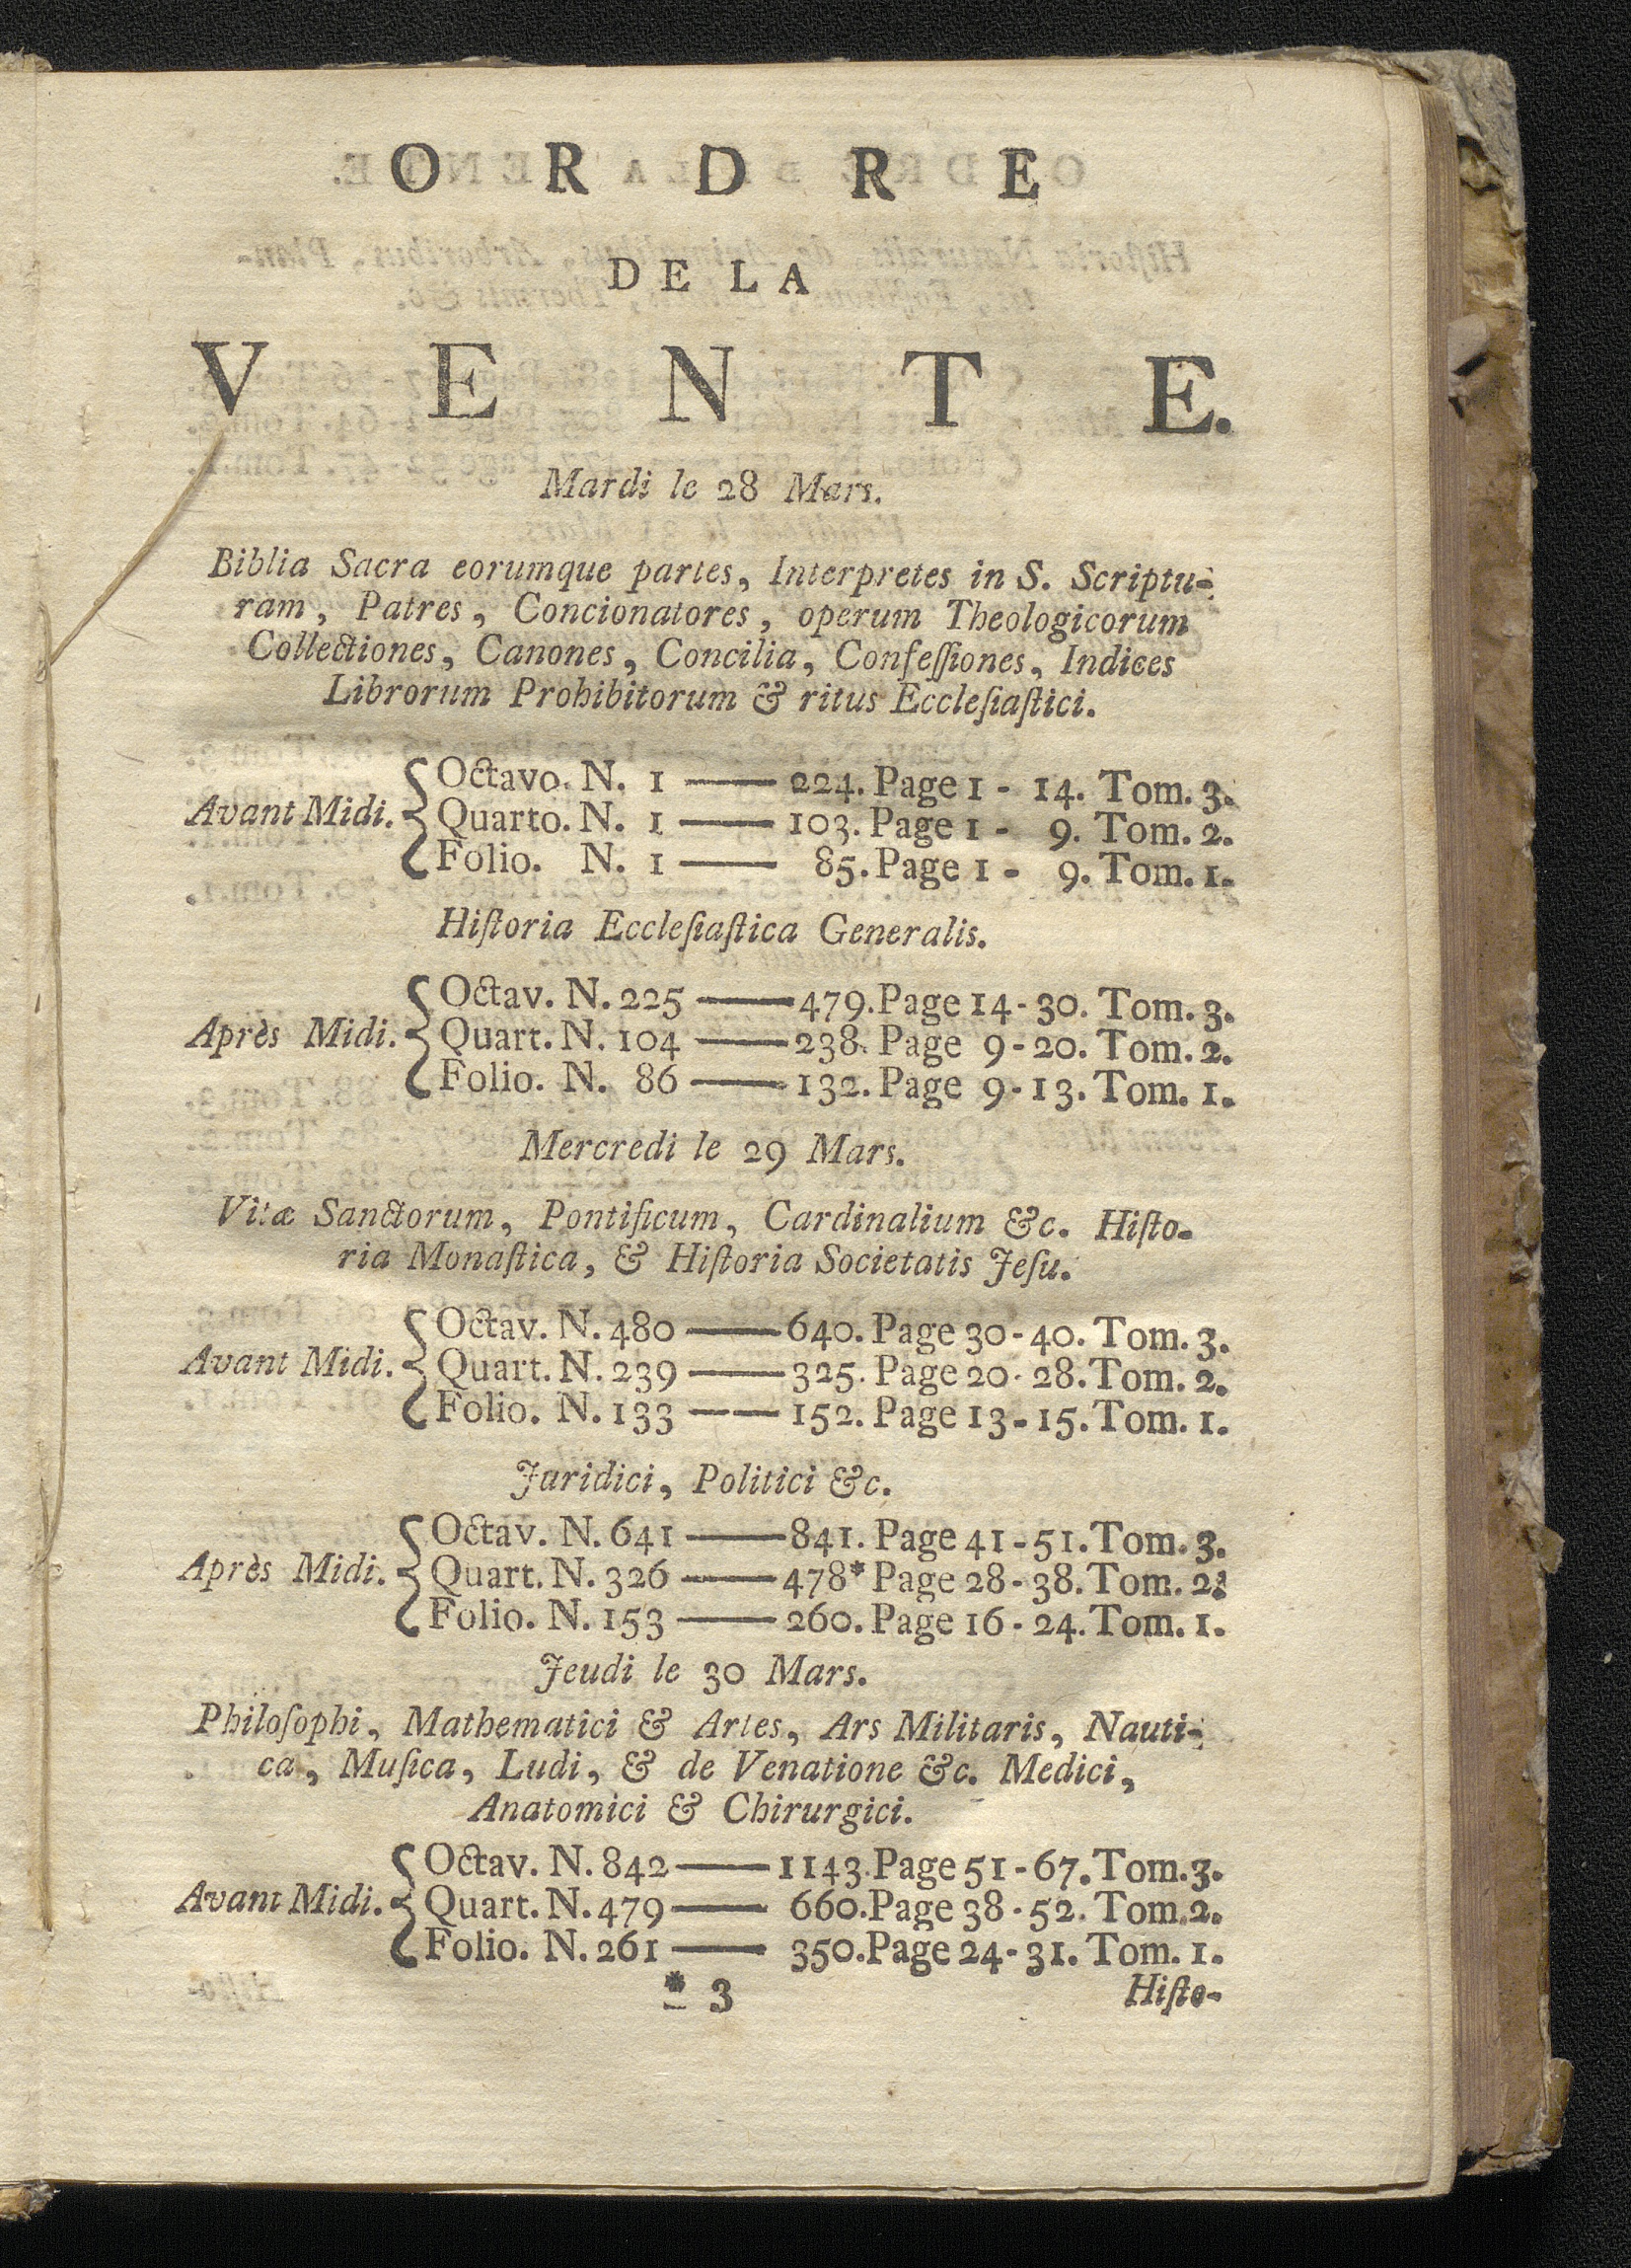 ORDRE
DE LA
VENTE.
Mardi le 28 Mars.
Biblia Sacra eorumque partes, Interpretes in S. Scriptu-
ram, Patres, Concionatores, operum Theologicorum
Collectiones, Canones, Concilia, Confeſſiones, Indices
Librorum Prohibitorum & ritus Eccleſiaſtici.
Octavo. N. 1 —— 224. Page 1 - 14. Tom. 3.
Avant Midi. { Quarto. N. 1 —— 103. Page 1 - 9. Tom. 2.
Folio. N. 1 —— 85. Page 1 - 9. Tom. 1.
Hiſtoria Eccleſiaſtica Generalis.
Octav. N. 225 —— 479. Page 14-30. Tom. 3.
Après Midi. { Quart. N. 104 —— 238. Page 9-20. Tom. 2.
Folio. N. 86 —— 132. Page 9-13. Tom. 1.
Mercredi le 29 Mars.
Vitæ Sanctorum, Pontificum, Cardinalium &c. Hiſto-
ria Monaſtica, & Hiſtoria Societatis Jeſu.
Octav. N. 480 —— 640. Page 30-40. Tom. 3.
Avant Midi. { Quart. N. 239 —— 325. Page 20-28. Tom. 2.
Folio. N. 133 —— 152. Page 13-15. Tom. 1.
Juridici, Politici &c.
Octav. N. 641 —— 841. Page 41-51. Tom. 3.
Après Midi. { Quart. N. 326 —— 478* Page 28-38. Tom. 2.
Folio. N. 153 —— 260. Page 16-24. Tom. 1.
Jeudi le 30 Mars.
Philoſophi, Mathematici & Artes, Ars Militaris, Nauti-
ca, Muſica, Ludi, & de Venatione &c. Medici,
Anatomici & Chirurgici.
Octav. N. 842 —— 1143. Page 51-67. Tom. 3.
Avant Midi. { Quart. N. 479 —— 660. Page 38-52. Tom. 2.
Folio. N. 261 —— 350. Page 24-31. Tom. 1.
* 3 Hiſto-